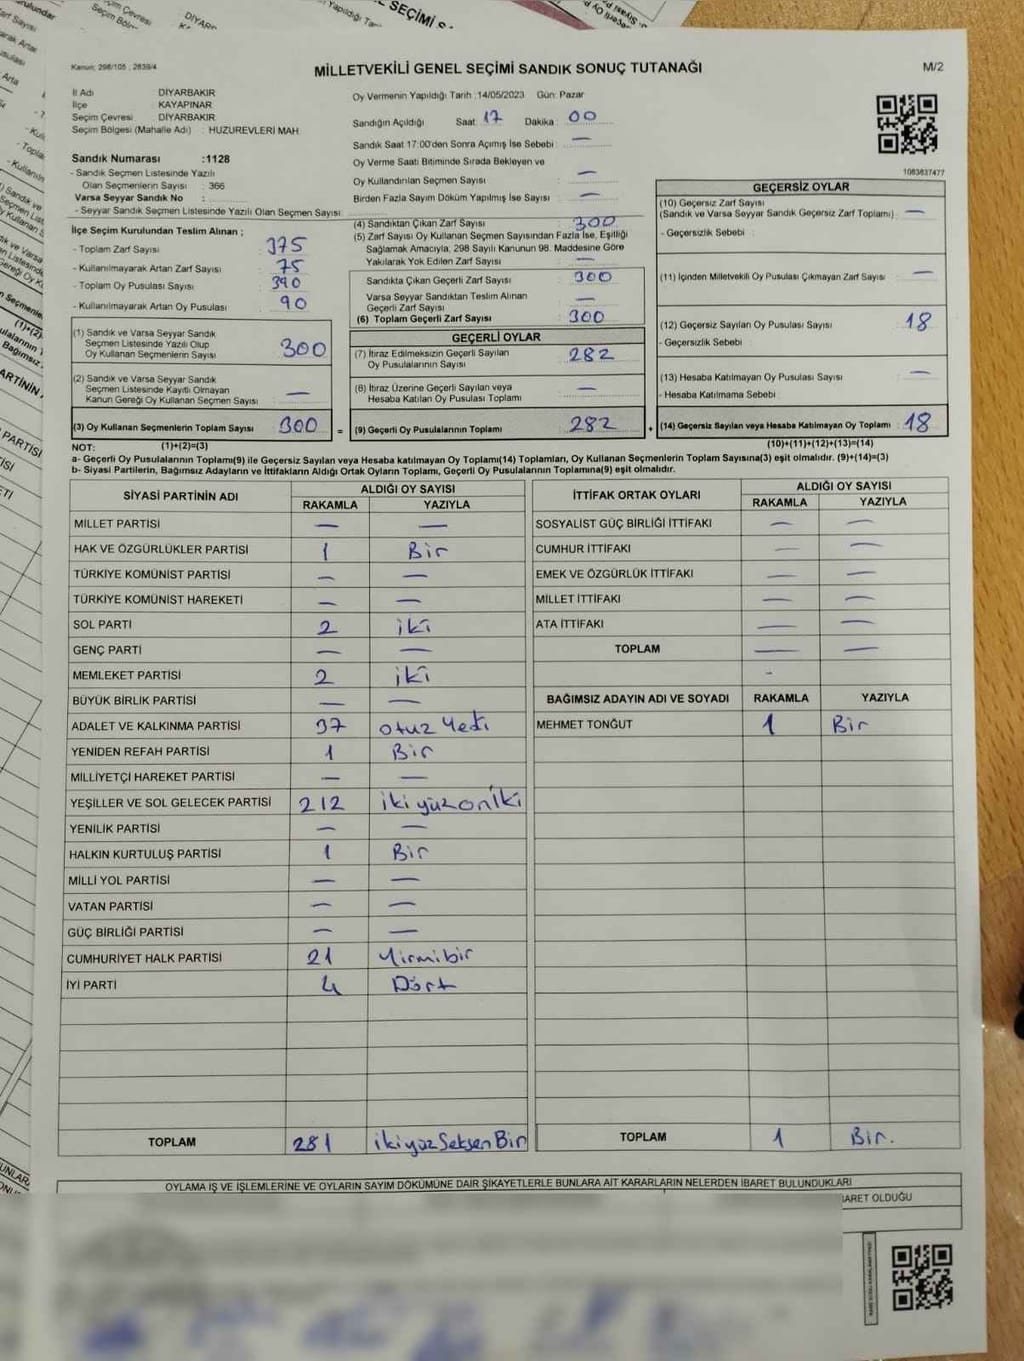 SEÇİMİ S
Kanun: 298/105 ; 2839/4
MİLLETVEKİLİ GENEL SEÇİMİ SANDIK SONUÇ TUTANAĞI
M/2
İl Adı DİYARBAKIR
İlçe KAYAPINAR
Seçim Çevresi DİYARBAKIR
Seçim Bölgesi (Mahalle Adı) : HUZUREVLERİ MAH.
Oy Vermenin Yapıldığı Tarih :14/05/2023 Gün: Pazar
Sandığın Açıldığı Saat: 17 Dakika : 00
Sandık Saat 17:00'den Sonra Açılmış İse Sebebi : —
Oy Verme Saati Bitiminde Sırada Bekleyen ve
Oy Kullandırılan Seçmen Sayısı —
Birden Fazla Sayım Döküm Yapılmış İse Sayısı —
1083837477
Sandık Numarası :1128
- Sandık Seçmen Listesinde Yazılı
Olan Seçmenlerin Sayısı : 366
Varsa Seyyar Sandık No :
- Seyyar Sandık Seçmen Listesinde Yazılı Olan Seçmen Sayısı :
İlçe Seçim Kurulundan Teslim Alınan ;
- Toplam Zarf Sayısı 375
- Kullanılmayarak Artan Zarf Sayısı : 75
- Toplam Oy Pusulası Sayısı : 390
- Kullanılmayarak Artan Oy Pusulası : 90
(1) Sandık ve Varsa Seyyar Sandık
Seçmen Listesinde Yazılı Olup
Oy Kullanan Seçmenlerin Sayısı : 300
(2) Sandık ve Varsa Seyyar Sandık
Seçmen Listesinde Kayıtlı Olmayan
Kanun Gereği Oy Kullanan Seçmen Sayısı : —
(3) Oy Kullanan Seçmenlerin Toplam Sayısı : 300
(4) Sandıktan Çıkan Zarf Sayısı : 300
(5) Zarf Sayısı Oy Kullanan Seçmen Sayısından Fazla İse, Eşitliği
Sağlamak Amacıyla, 298 Sayılı Kanunun 98. Maddesine Göre
Yakılarak Yok Edilen Zarf Sayısı : —
Sandıkta Çıkan Geçerli Zarf Sayısı : 300
Varsa Seyyar Sandıktan Teslim Alınan
Geçerli Zarf Sayısı —
(6) Toplam Geçerli Zarf Sayısı : 300
GEÇERLİ OYLAR
(7) İtiraz Edilmeksizin Geçerli Sayılan
Oy Pusulalarının Sayısı : 282
(8) İtiraz Üzerine Geçerli Sayılan veya
Hesaba Katılan Oy Pusulası Toplamı : —
= (9) Geçerli Oy Pusulalarının Toplamı : 282
GEÇERSİZ OYLAR
(10) Geçersiz Zarf Sayısı
(Sandık ve Varsa Seyyar Sandık Geçersiz Zarf Toplamı) : —
- Geçersizlik Sebebi :
(11) İçinden Milletvekili Oy Pusulası Çıkmayan Zarf Sayısı : —
(12) Geçersiz Sayılan Oy Pusulası Sayısı : 18
- Geçersizlik Sebebi
(13) Hesaba Katılmayan Oy Pusulası Sayısı : —
- Hesaba Katılmama Sebebi :
+ (14) Geçersiz Sayılan veya Hesaba Katılmayan Oy Toplamı : 18
NOT: (1)+(2)=(3) (10)+(11)+(12)+(13)=(14)
a- Geçerli Oy Pusulalarının Toplamı(9) ile Geçersiz Sayılan veya Hesaba katılmayan Oy Toplamı(14) Toplamları, Oy Kullanan Seçmenlerin Toplam Sayısına(3) eşit olmalıdır. (9)+(14)=(3)
b- Siyasi Partilerin, Bağımsız Adayların ve İttifakların Aldığı Ortak Oyların Toplamı, Geçerli Oy Pusulalarının Toplamına(9) eşit olmalıdır.
SİYASİ PARTİNİN ADI ALDIĞI OY SAYISI
RAKAMLA YAZIYLA
MİLLET PARTİSİ — —
HAK VE ÖZGÜRLÜKLER PARTİSİ 1 Bir
TÜRKİYE KOMÜNİST PARTİSİ — —
TÜRKİYE KOMÜNİST HAREKETİ — —
SOL PARTİ 2 iki
GENÇ PARTİ — —
MEMLEKET PARTİSİ 2 iki
BÜYÜK BİRLİK PARTİSİ — —
ADALET VE KALKINMA PARTİSİ 37 otuz Yedi
YENİDEN REFAH PARTİSİ 1 Bir
MİLLİYETÇİ HAREKET PARTİSİ — —
YEŞİLLER VE SOL GELECEK PARTİSİ 212 iki yüz oniki
YENİLİK PARTİSİ — —
HALKIN KURTULUŞ PARTİSİ 1 Bir
MİLLİ YOL PARTİSİ — —
VATAN PARTİSİ — —
GÜÇ BİRLİĞİ PARTİSİ — —
CUMHURİYET HALK PARTİSİ 21 Yirmibir
İYİ PARTİ 4 Dört
TOPLAM 281 ikiyüz Seksen Bir
İTTİFAK ORTAK OYLARI ALDIĞI OY SAYISI
RAKAMLA YAZIYLA
SOSYALİST GÜÇ BİRLİĞİ İTTİFAKI — —
CUMHUR İTTİFAKI — —
EMEK VE ÖZGÜRLÜK İTTİFAKI — —
MİLLET İTTİFAKI — —
ATA İTTİFAKI — —
TOPLAM — —
-
BAĞIMSIZ ADAYIN ADI VE SOYADI RAKAMLA YAZIYLA
MEHMET TONĞUT 1 Bir
TOPLAM 1 Bir.
OYLAMA İŞ VE İŞLEMLERİNE VE OYLARIN SAYIM DÖKÜMÜNE DAİR ŞİKAYETLERLE BUNLARA AİT KARARLARIN NELERDEN İBARET BULUNDUKLARI
İBARET OLDUĞU